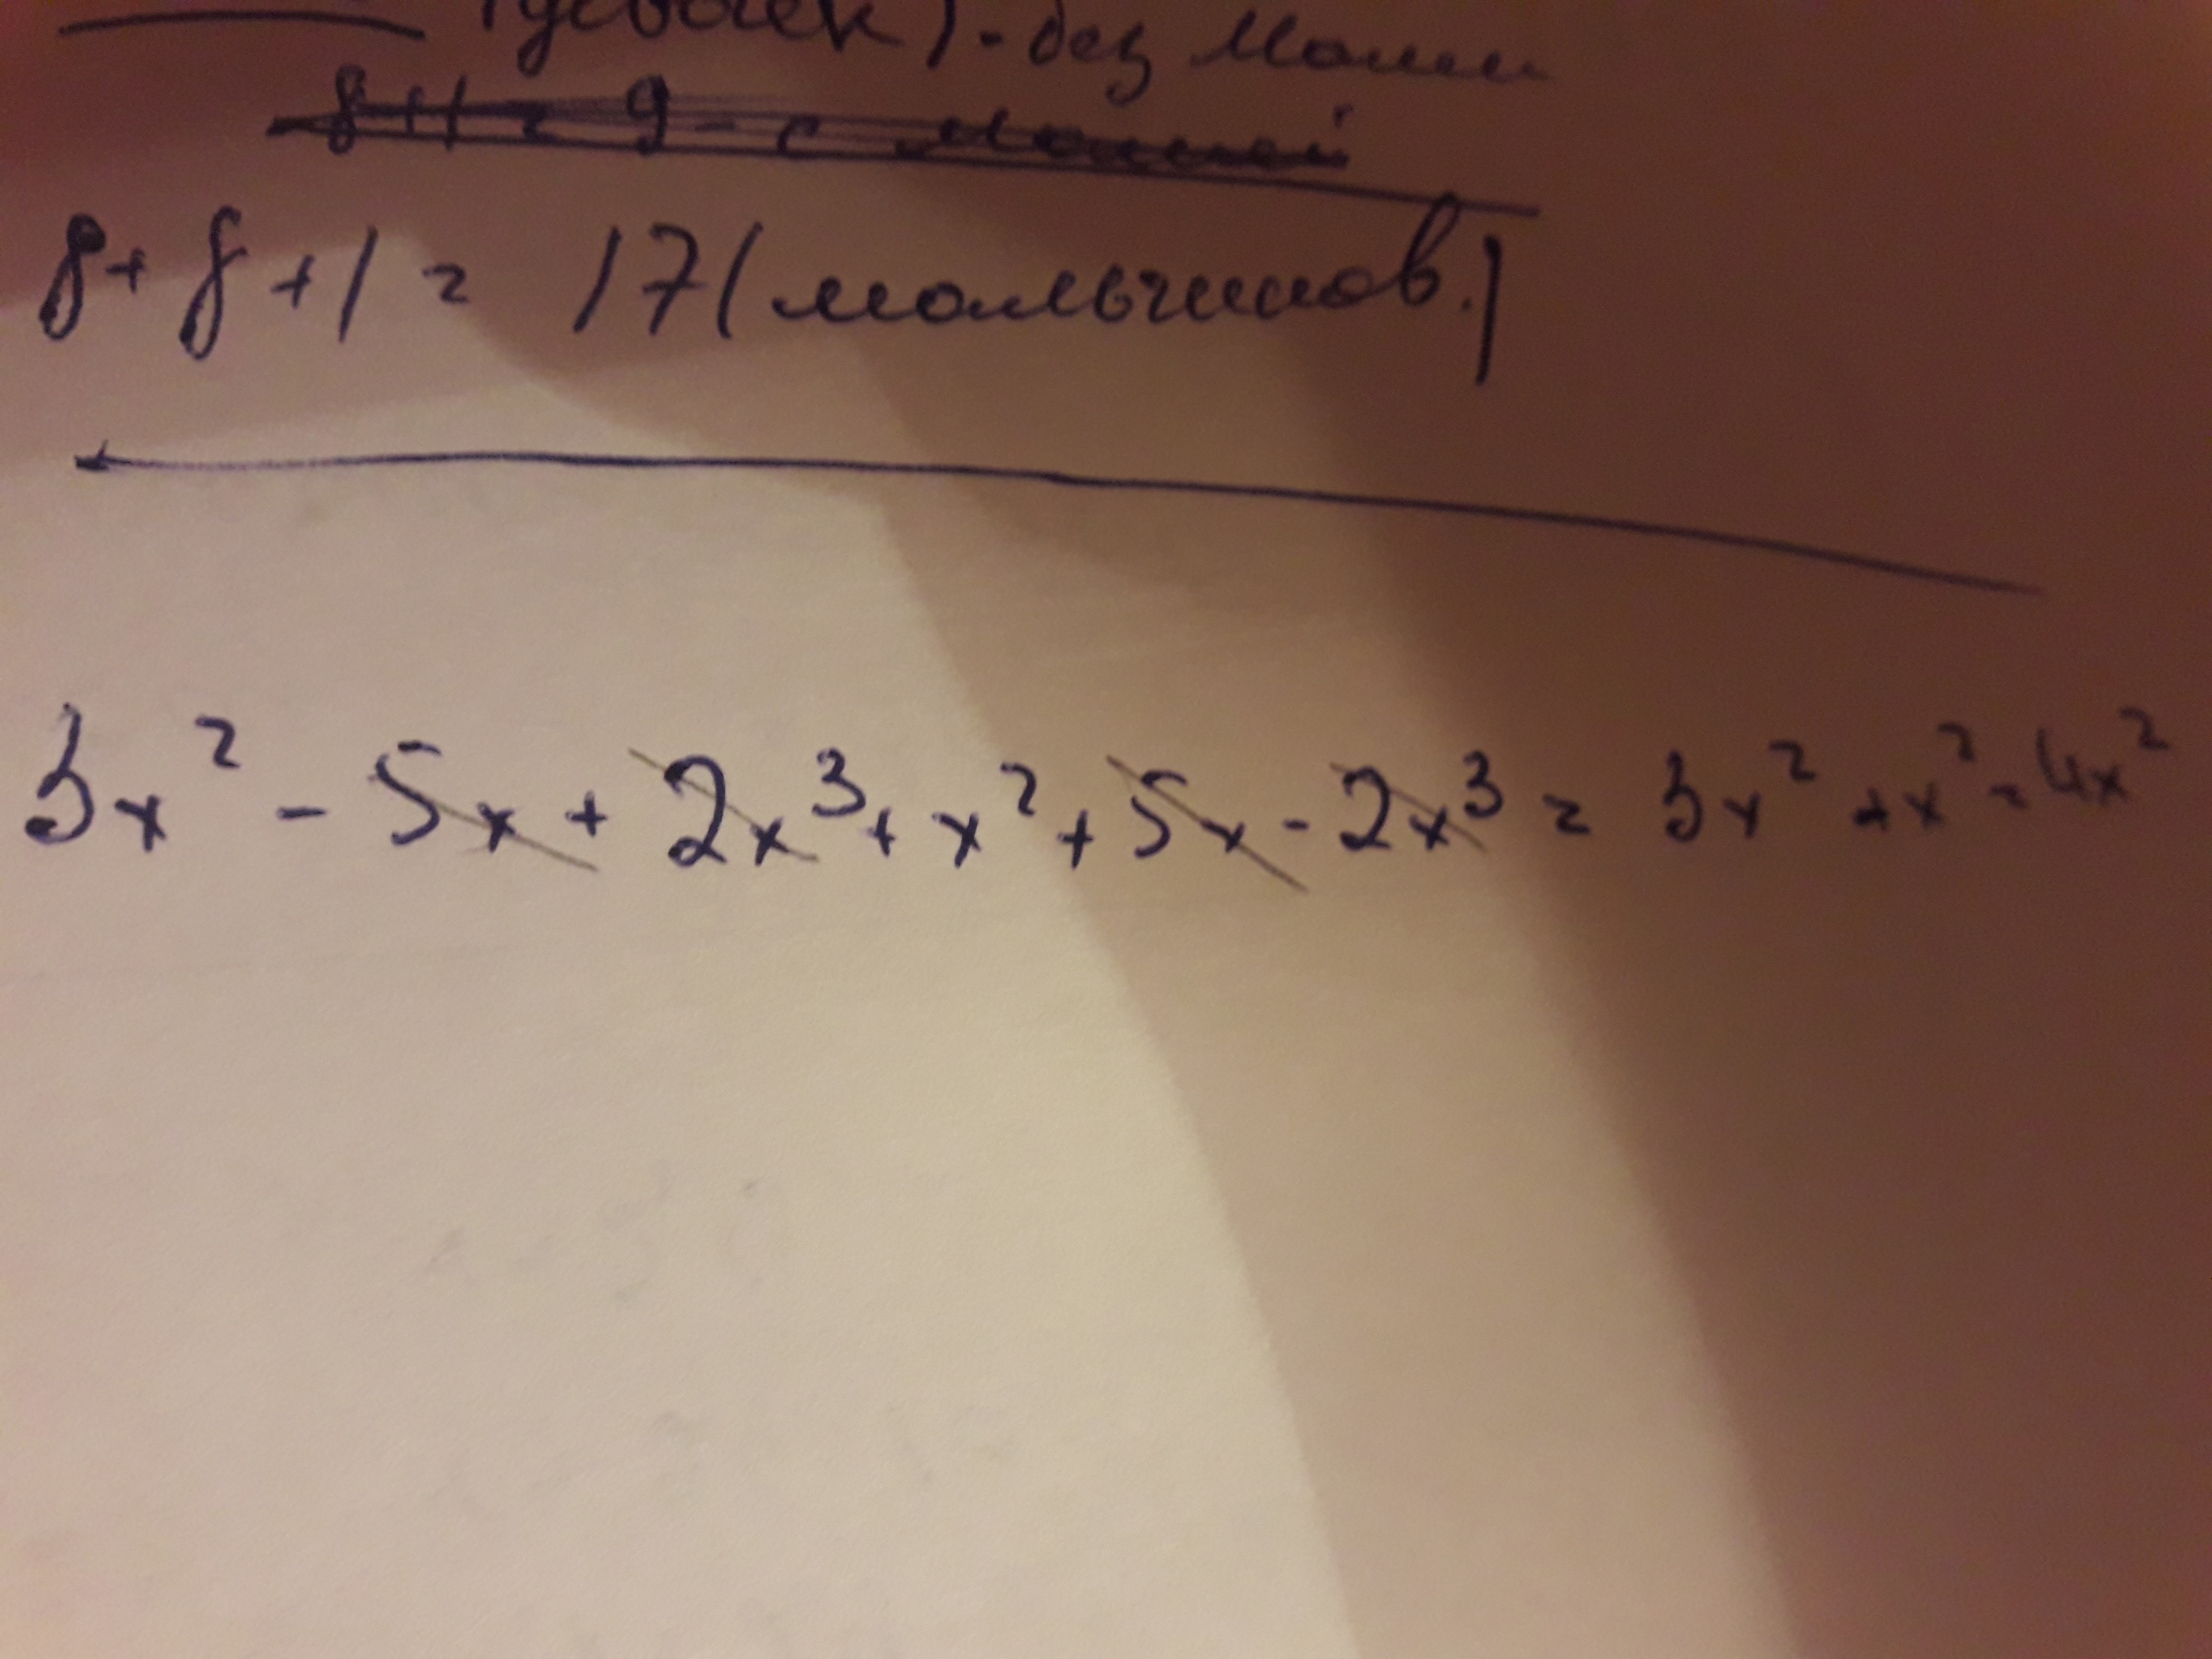 (девочек) - без Маши
8+1 = 9 - с Машей
8 + 8 + 1 = 17 (мальчиков.)
3x² - 5x + 2x³ + x² + 5x - 2x³ = 3x² + x² = 4x²